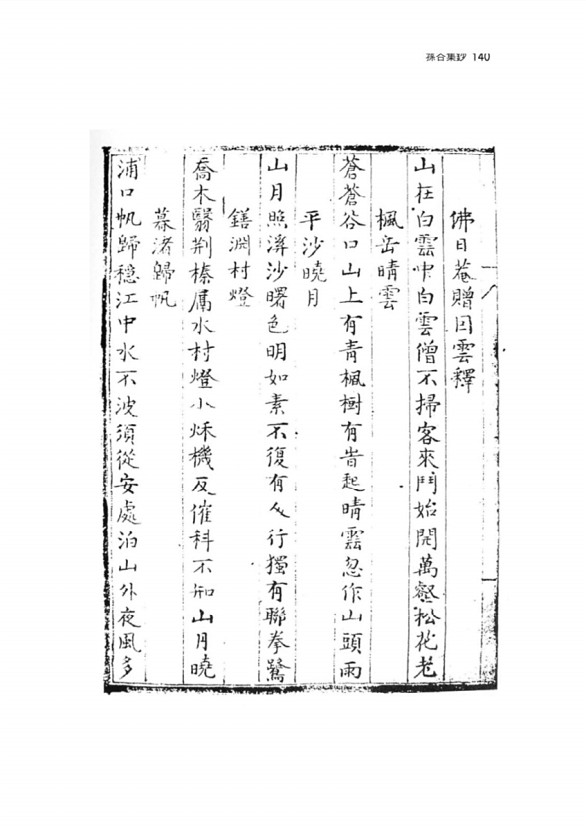 孫合集鈔 140
佛日菴贈因雲釋
山在白雲中白雲僧不掃客來門始開萬壑松花老
楓岳晴雲
蒼蒼谷口山上有靑楓樹有旹起晴雲忽作山頭雨
平沙曉月
山月照濘沙曙色明如素不復有人行獨有聯拳鷺
鐥淵村燈
喬木翳荆榛屬水村燈小秌機及催科不知山月曉
暮渚歸帆
浦口帆歸穩江中水不波須從安處泊山外夜風多